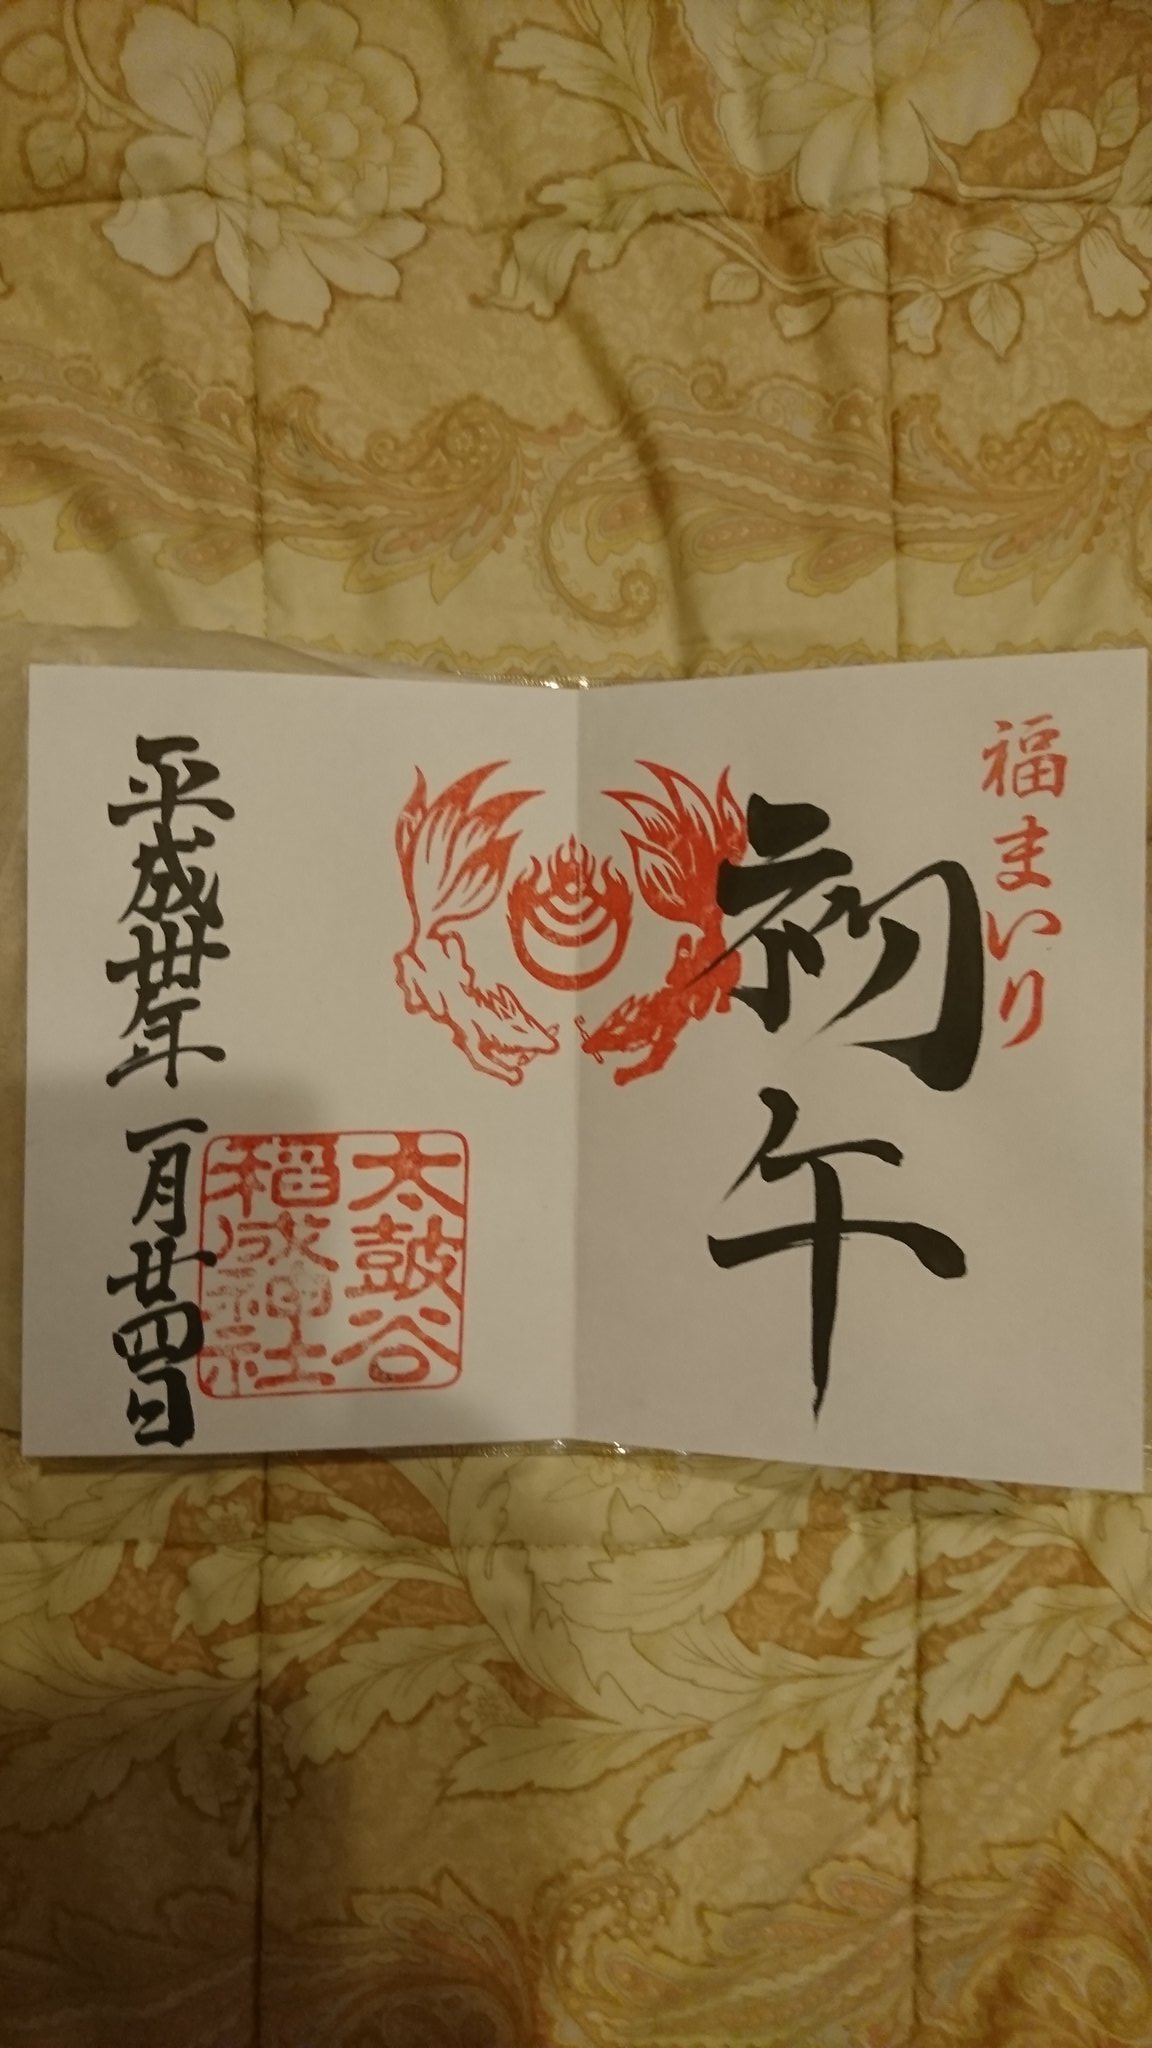 福まいり
初午
太鼓谷
稲成神社
平成丗年一月廿四日